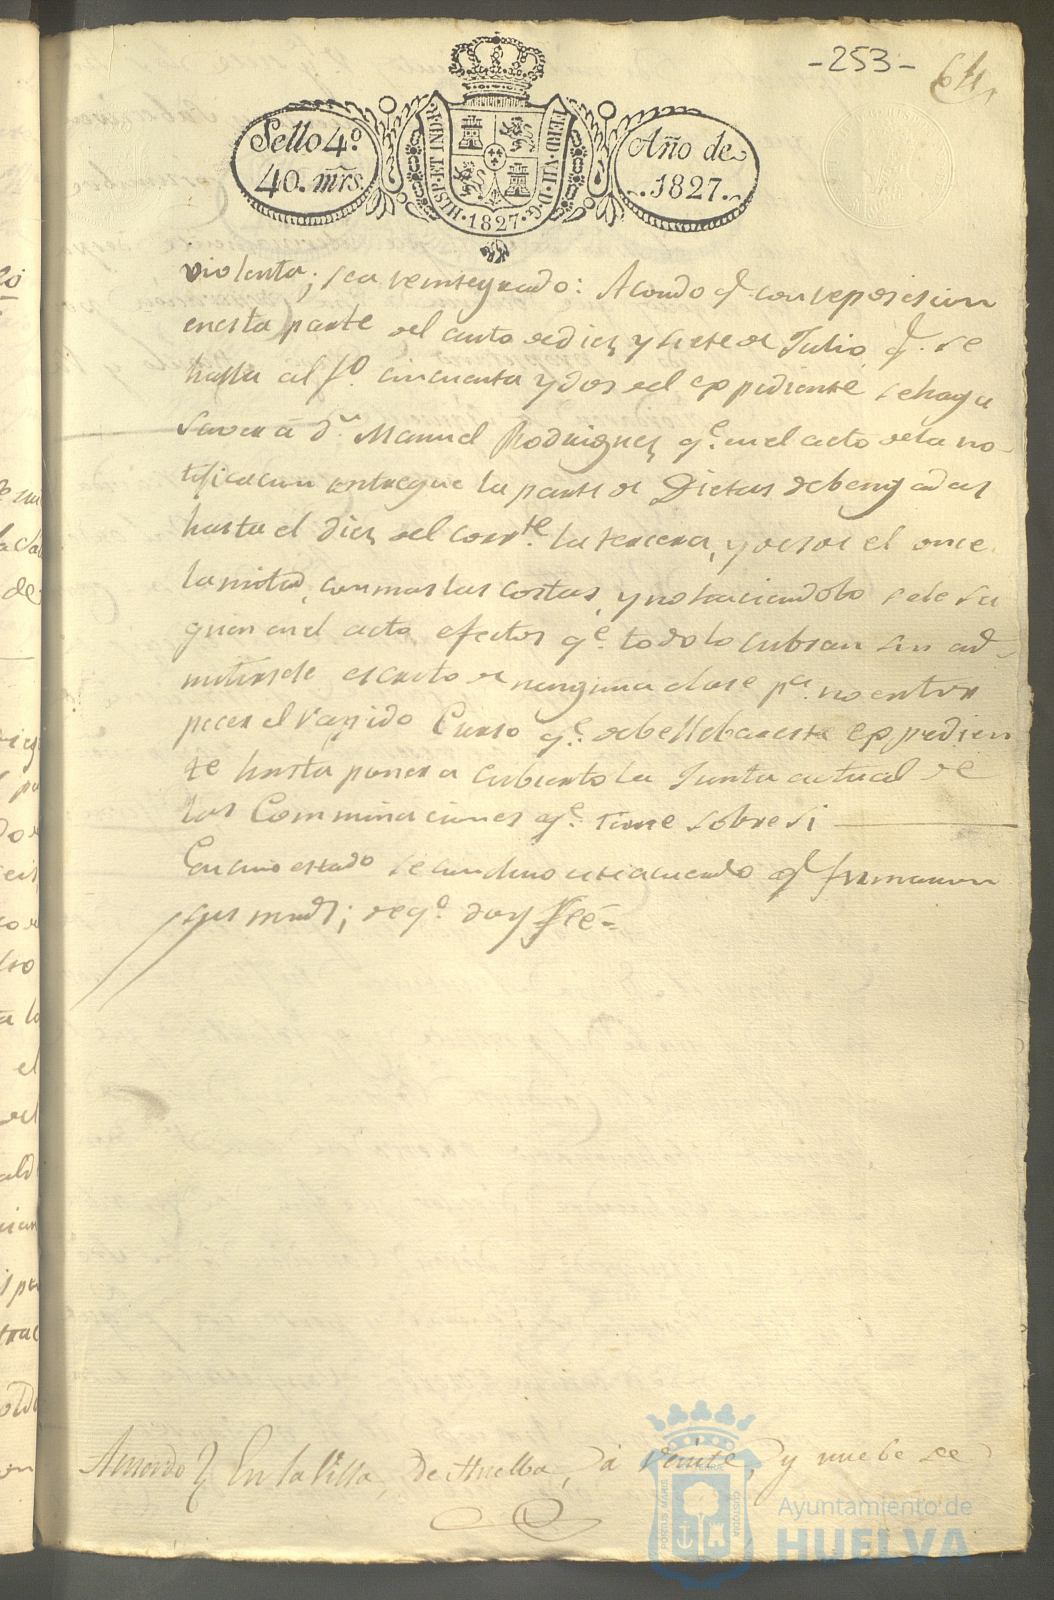 -253-
64
Sello 4º
40. mrs.
HISP. ET IND. R. FERD. VII. D. G.
·1827·
Año de
1827.
violenta; sea reintegrado: Acordo qe con reposicion
en esta parte del auto de diez y siete de Julio, qe. se
halla al fº. cincuenta y dos del expediente, se haga
saver a dn. Manuel Rodriguez, qe. en el acto de la no-
tificacion entregue la parte de Dietas debengadas
hasta el diez del corrte. la tercera, y desde el once
la mitad, con mas las costas, y no haciendolo se le sa
quen en el acto efectos qe. todo lo cubran sin ad-
mitirsele escrito de ninguna clase pa. no entor
pecer el rapido Curso qe. debe llebar este expedien
te hasta poner a cubierto la Junta actual de
las Comminaciones qe. tiene sobre si
En cuio estado se concluio este acuerdo qe firmaron
sus mrds; de qº. doy Feé=
Acuerdo } En la Villa, de Huelba, á veinte, y nuebe de
PORTUS MARIS ET TERRAE CUSTODIA
Ayuntamiento de
HUELVA